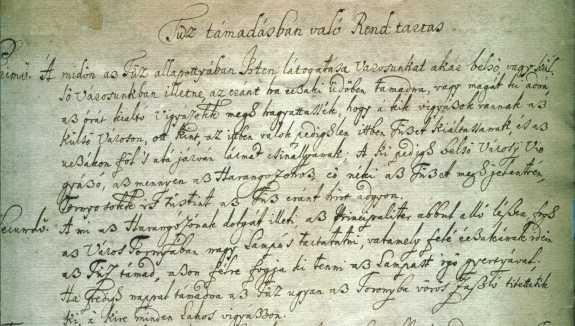 Tűz támadásban való Rend tartas
Primó. A midőn az Tűz állapottyában Isten látogatása Városunkat akar belső, vagy kül-
ső Városunkban illetne, az eránt ha éczakai üdőben támadna, vagy magát ki adná,
az órát kialtó Vigyazókk meg hagyattassék, hogy a kik vigyázok vannak az
külső Városon, ott kint, az itben valok pedighlen itben Tüzet kiálcsanak, és az
uczákon fol s alá járván lármát csinállyanak; A ki pedigh belső Városy Vi-
gyázó, az mennyen az Harangozohoz, és néki az Tüzet megh jelentvén,
Tornyotokk is tüstint az Tüz eránt hirt adgyon.
Secundó. A mi az Harangozónak dolgát illeti az Principaliter abbul álló légyen, hogy
az Város Tornyában nagy Lampas tartatatni, valamely felé éczakának idein
az Tűz támad, azon félre fogja ki tenni az Lampást égő gyertyával.
Ha pedigh nappal támadna az Tűz ugyan az Toronyba vörös Zászló titettetik
ki, a kire minden lakos vigyázzon.